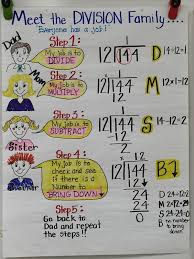 Meet the DIVISION Family....
Everyone has a job!
Dad
Step 1:
My job is to
DIVIDE
12 144
D
14÷12=1
Mom
Step 2:
My job is to
MULTIPLY
1
12 144
12
M
12×1=12
Step 3:
My job is to
SUBTRACT
1
12 144
-12
2
S
14-12=2
Sister
Step 4:
My job is to
check and see
if there is a
Number to
BRING DOWN
Brother
12 144
-12
24
B
Step 5:
Go back to
Dad and repeat
the steps!!
24
-24
0
D 24÷12=2
M 12×2=24
S 24-24=0
B no number
to bring
down